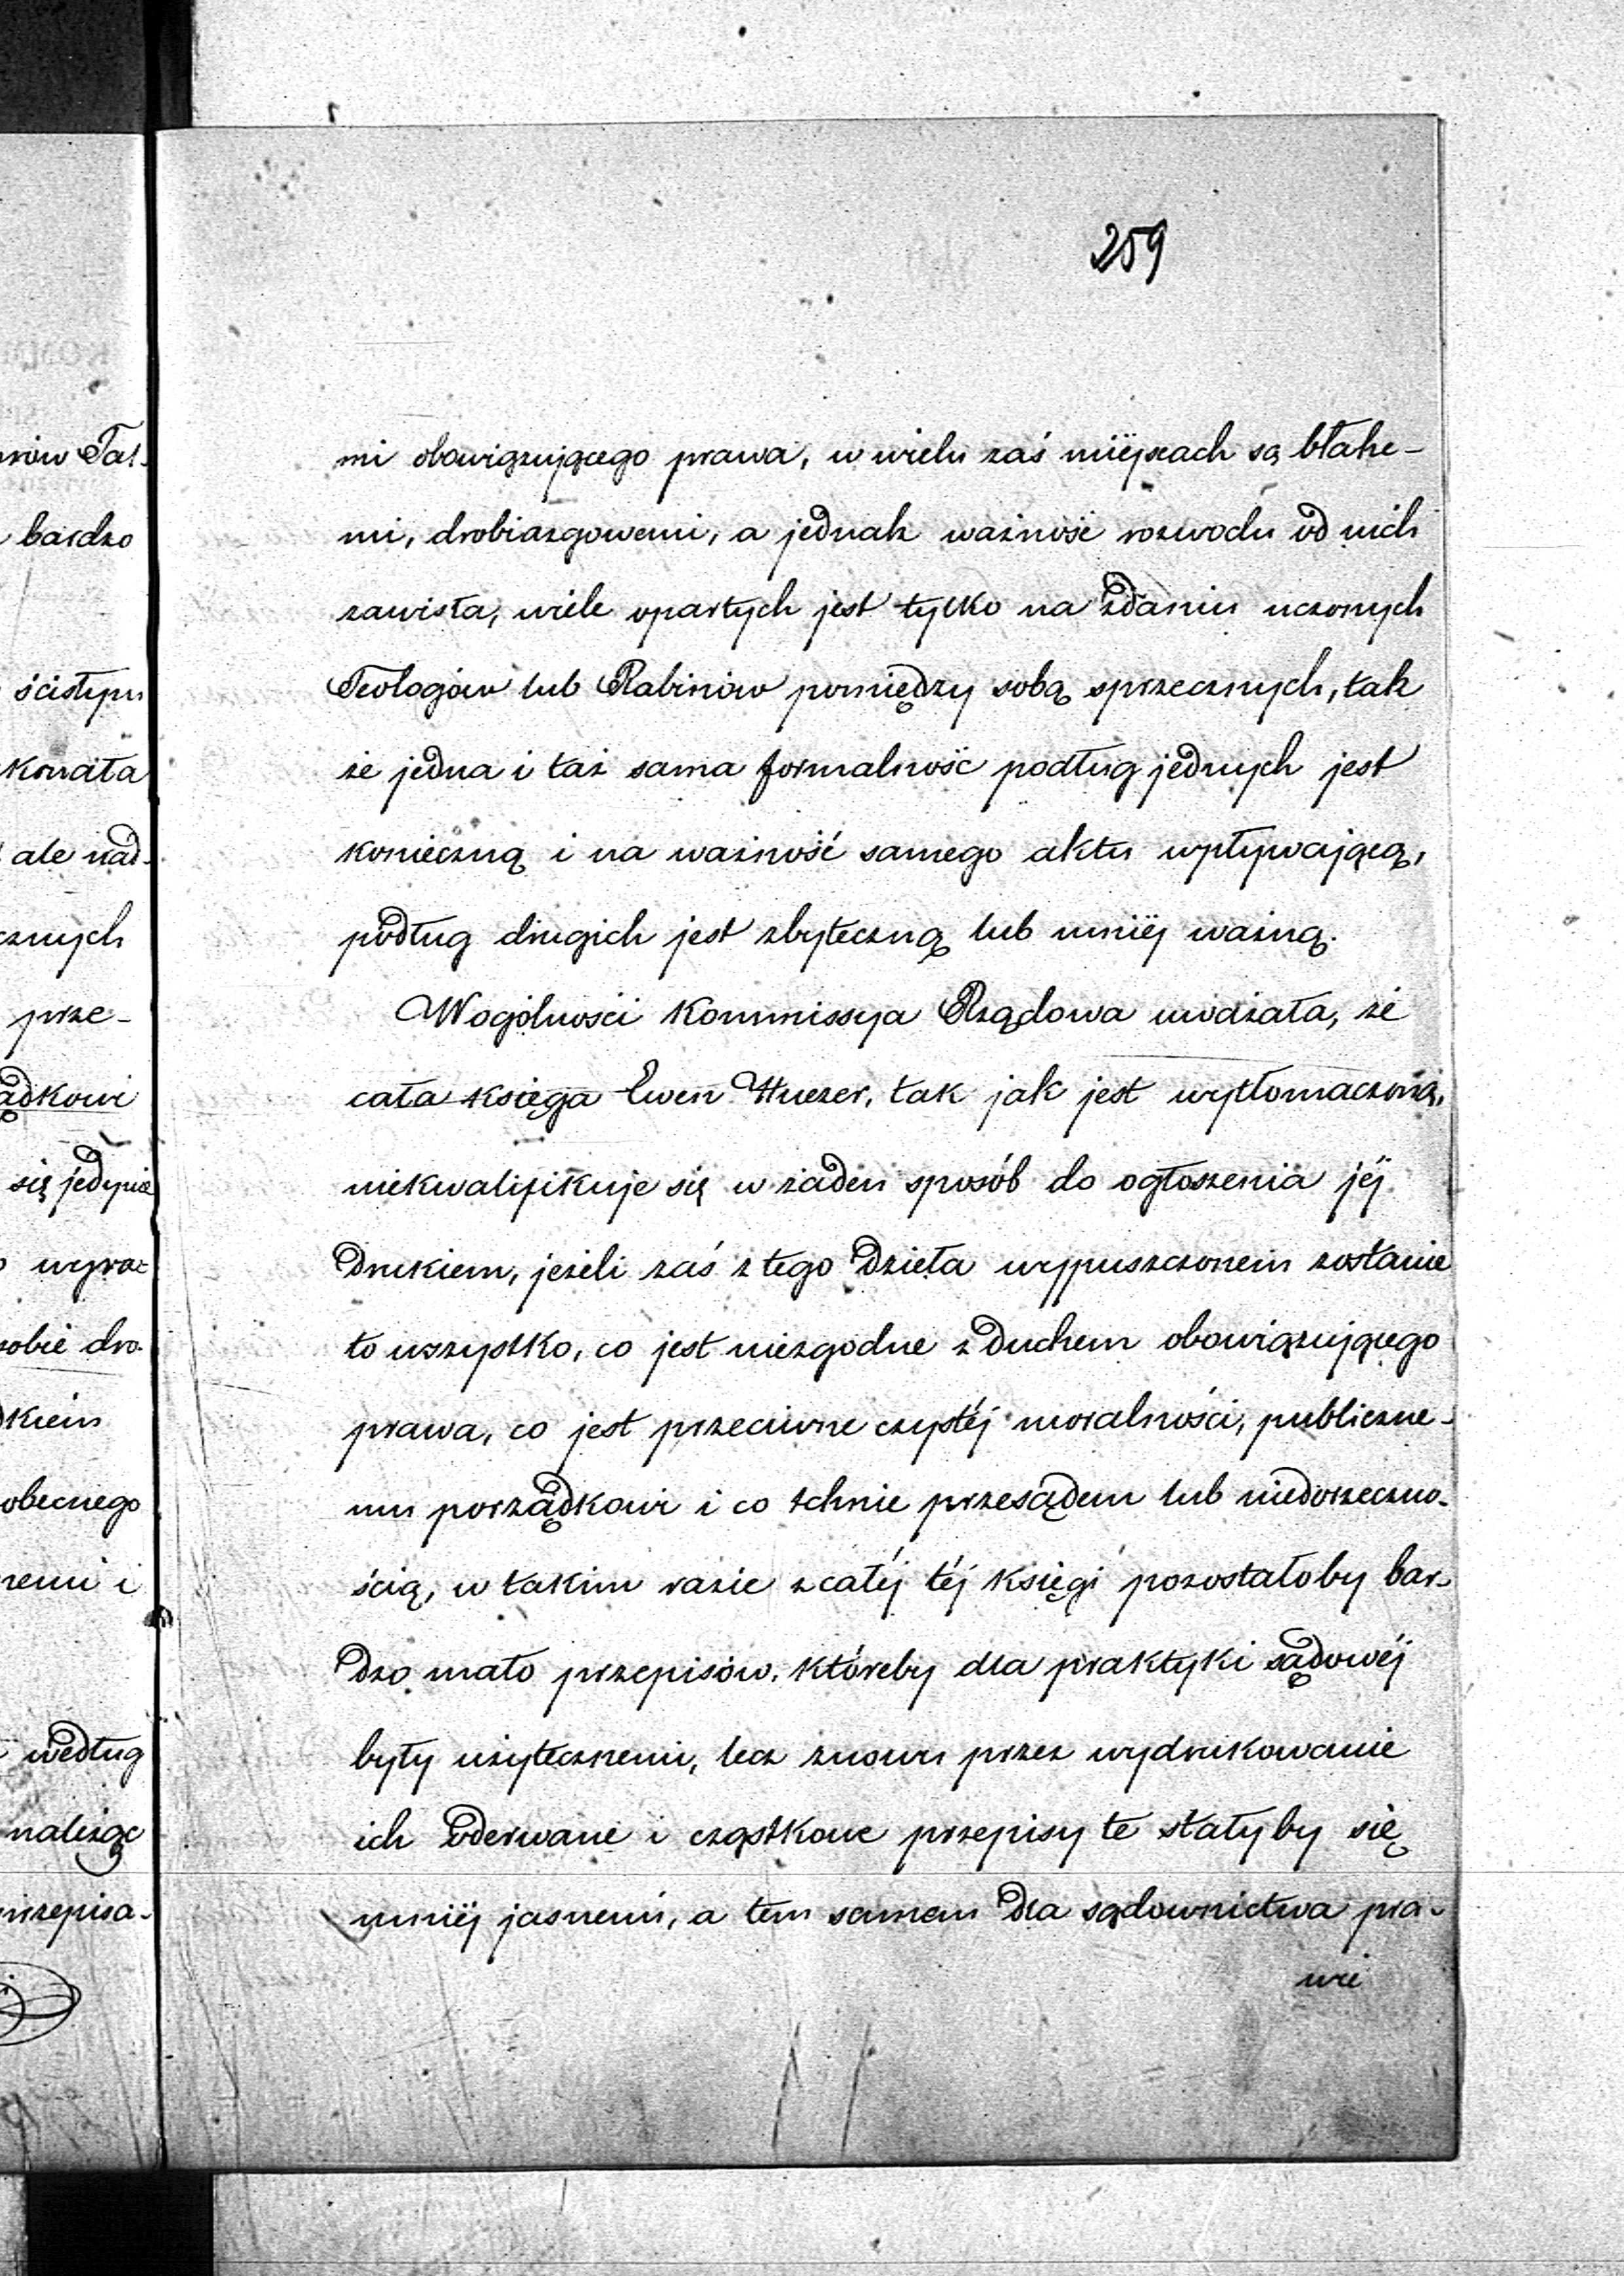 259
mi obowiązującego prawa, w wielu zaś miéjscach są błahe-
mi, drobiazgowemi, a jednak ważność rozwodu od nich
zawisła, wiele opartych jest tylko na zdaniu uczonych
Teologów lub Rabinów pomiędzy sobą sprzecznych, tak
że jedna i taż sama formalność podług jednych jest
konieczną i na ważność samego aktu wpływającą,
podług drugich jest zbyteczną lub mniéj ważną.
Wogólności Kommissya Rządowa uważała, że
cała księga Ewen Huezer, tak jak jest wytłomaczoną,
niekwalifikuje się w żaden sposób do ogłoszenia jéj
drukiem, jeżeli zaś z tego dzieła wypuszczonem zostanie
to wszystko, co jest niezgodne z duchem obowiązującego
prawa, co jest przeciwne czystéj moralności, publiczne-
mu porządkowi i co tchnie przesądem lub niedorzeczno-
ścią, w takim razie z całéj téj księgi pozostałoby bar-
dzo mało przepisów, któreby dla praktyki sądowéj
były użytecznemi, lecz znowu przez wydrukowanie
ich oderwane i cząstkowe przepisy te stałyby się
mniéj jasnemi, a tem samem dla sądownictwa pra-
wie
rów Tal-
bardzo
ścisłym
konała
ale nad-
cznych
prze-
ądkowi
się jedynie
wyra-
sobie dro-
dkiem
obecnego
nemi i
według
należąc
przepisa-